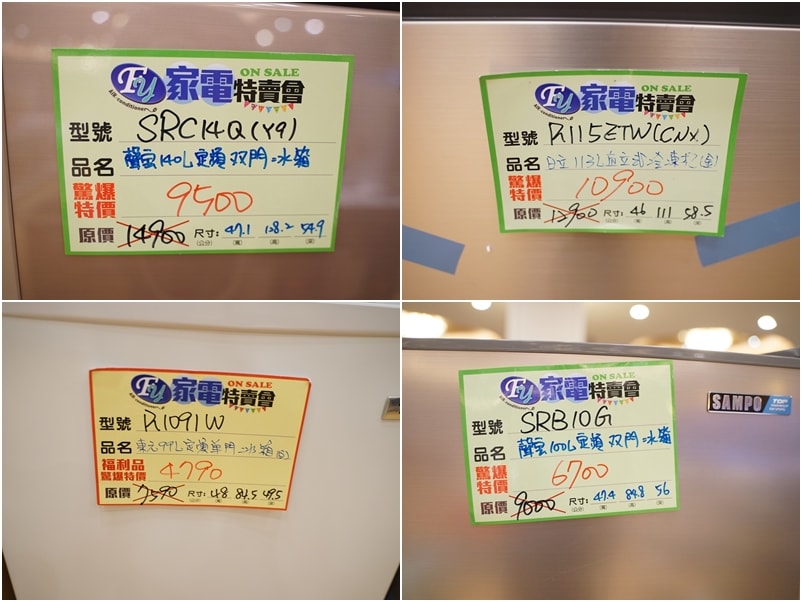 Fu 家電特賣會 ON SALE
Air conditioner
型號 SRC14Q(Y9)
品名 聲宝140L定頻双門冰箱
驚爆特價 9500
原價 14900 尺寸: 47.1 128.2 54.9
(公分) (寬) (高) (深)
Fu 家電特賣會 ON SALE
Air conditioner
型號 R115ETW(CNX)
品名 日立113L直立式冷凍柜(金)
驚爆特價 10900
原價 12900 尺寸: 46 111 58.5
(公分) (寬) (高) (深)
Fu 家電特賣會 ON SALE
Air conditioner
型號 R1091W
品名 東元99L定頻單門冰箱
福利品
驚爆特價 4790
原價 7590 尺寸: 48 84.5 49.5
(公分) (寬) (高) (深)
Fu 家電特賣會 ON SALE
Air conditioner
型號 SRB10G
品名 聲宝100L定頻双門冰箱
驚爆特價 6700
原價 9000 尺寸: 47.4 84.8 56
(公分) (寬) (高) (深)
SAMPO TOP